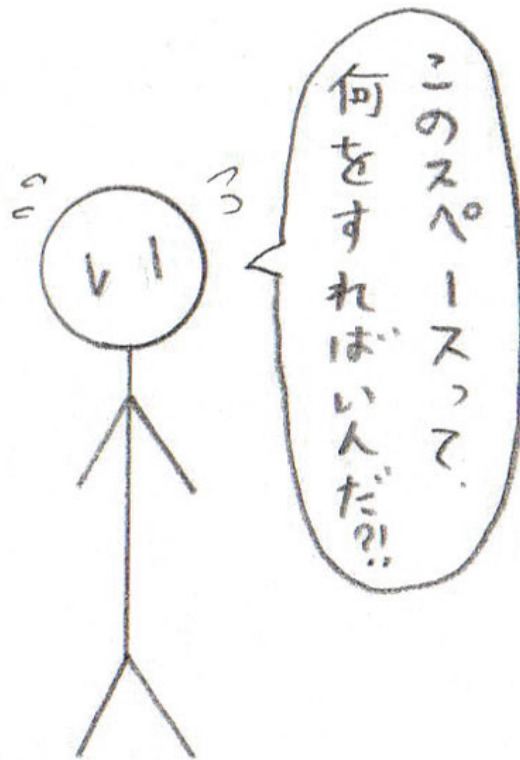 このスペースって、
何をすればい人だ?!
い